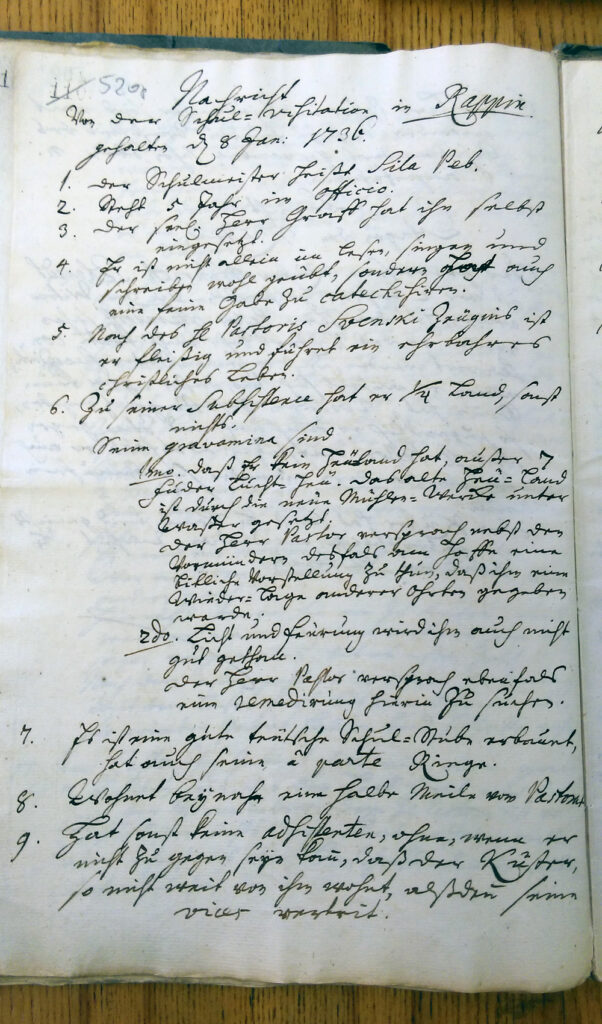 118 520.
Nachricht
Von der Schul-Visitation in Rappin.
gehalten d. 8 Jan: 1736.
1. Der Schulmeister heißt Sila Peb.
2. Steht 5 Jahr in officio.
3. Der seel. Herr Graff hat ihn selbst
eingesetzt.
4. Er ist nicht allein im lesen, singen und
schreiben wohl geübt, sondern hat auch
eine feine Gabe zu catechisiren.
5. Nach des H. Pastoris Svenski Zeugnis ist
er fleißig und führet ein ehrbahres
christliches Leben.
6. Zu seiner Subsistence hat er 1/4 Land, sonst
nichts.
Seine gravamina sind
1mo. daß Er kein Heuland hat, außer 7
Fuder Heu. Das alte Heu-Land
ist durch die neue Mühlen-Wercke unter
Waßer gesetzt.
Der Herr Pastor versprach nebst den
Vormündern desfals am Hoffe eine
billige Vorstellung zu thun, daß ihm eine
Wieder-lage anderer Ohrten gegeben
werde.
2do. Licht und Feurung wird ihm auch nicht
gut gethan.
Der Herr Pastor versprach ebenfals
eine remedirung hierin zu suchen.
7. Es ist eine gute teutsche Schul-Stube erbauet,
hat auch seine à parte Riege.
8. Wohnet beynahe eine halbe Meile vom Pastorat
9. Hat sonst keine adsistenten, ohne, wenn er
nicht zu gegen seyn kan, daß der Küster,
so nicht weit von ihm wohnt, alßden seine
vices vertrit.